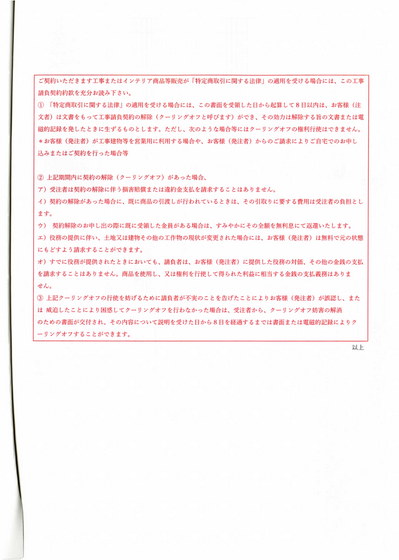 ご契約いただきます工事またはインテリア商品等販売が「特定商取引に関する法律」の適用を受ける場合には、この工事
請負契約約款を充分お読み下さい。
① 「特定商取引に関する法律」の適用を受ける場合には、この書面を受領した日から起算して８日以内は、お客様（注
文者）は文書をもって工事請負契約の解除（クーリングオフと呼びます）ができ、その効力は解除する旨の文書または電
磁的記録を発したときに生ずるものとします。ただし、次のような場合等にはクーリングオフの権利行使はできません。
＊お客様（発注者）が工事建物等を営業用に利用する場合や、お客様（発注者）からのご請求によりご自宅でのお申し
込みまたはご契約を行った場合等
② 上記期間内に契約の解除（クーリングオフ）があった場合、
ア）受注者は契約の解除に伴う損害賠償または違約金支払を請求することはありません。
イ）契約の解除があった場合に、既に商品の引渡しが行われているときは、その引取りに要する費用は受注者の負担とし
ます。
ウ） 契約解除のお申し出の際に既に受領した金員がある場合は、すみやかにその全額を無利息にて返還いたします。
エ）役務の提供に伴い、土地又は建物その他の工作物の現状が変更された場合には、お客様（発注者）は無料で元の状態
にもどすよう請求することができます。
オ）すでに役務が提供されたときにおいても、請負者は、お客様（発注者）に提供した役務の対価、その他の金銭の支払
を請求することはありません。商品を使用し、又は権利を行使して得られた利益に相当する金銭の支払義務はありま
せん。
③ 上記クーリングオフの行使を妨げるために請負者が不実のことを告げたことによりお客様（発注者）が誤認し、また
は 威迫したことにより困惑してクーリングオフを行わなかった場合は、受注者から、クーリングオフ妨害の解消
のための書面が交付され、その内容について説明を受けた日から８日を経過するまでは書面または電磁的記録によりク
ーリングオフすることができます。
以上